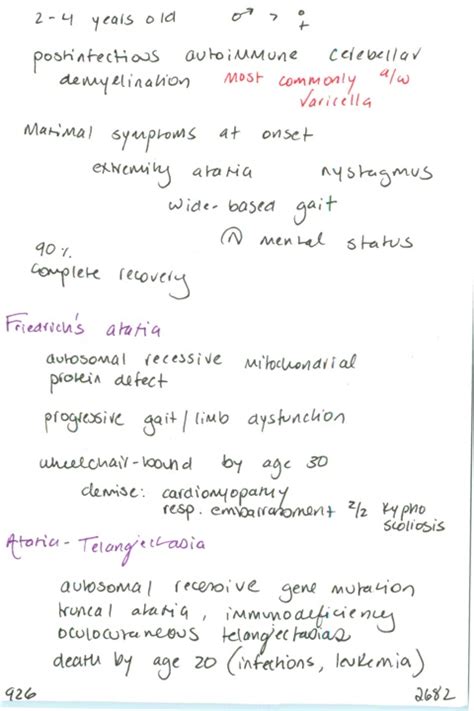 2-4 years old ♂ > ♀
postinfectious autoimmune cerebellar
demyelination most commonly a/w
varicella
Maximal symptoms at onset
extremity ataxia nystagmus
wide-based gait
Ⓝ mental status
90%
complete recovery
Friedrich's ataxia
autosomal recessive mitochondrial
protein defect
progressive gait/limb dysfunction
wheelchair-bound by age 30
demise: cardiomyopathy
resp. embarrassment 2/2 kypho
scoliosis
Ataxia-Telangiectasia
autosomal recessive gene mutation
truncal ataxia, immunodeficiency
oculocutaneous telangiectasias
death by age 20 (infections, leukemia)
926 2682